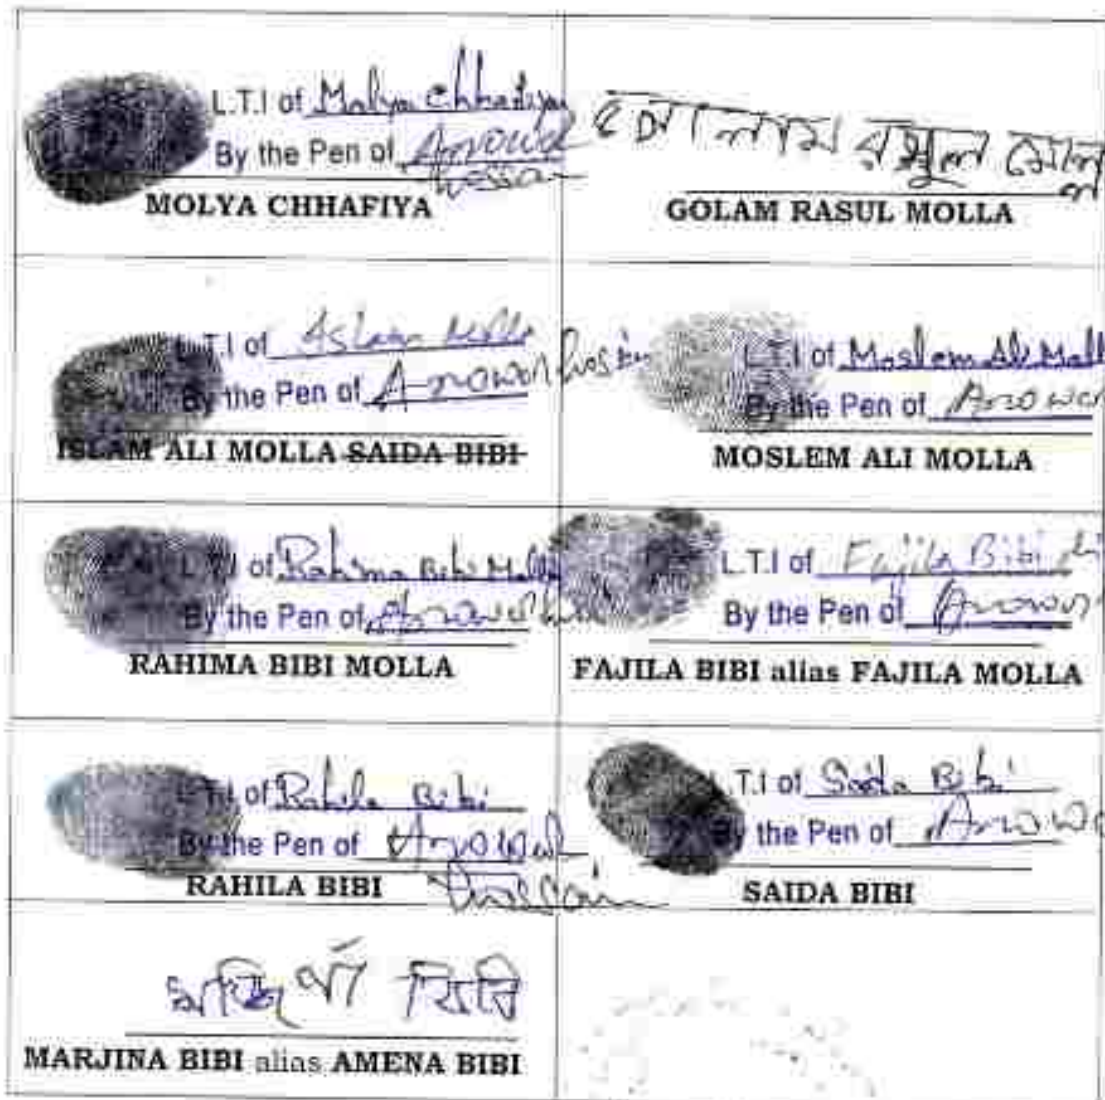 L.T.I of Molya Chhafiya
By the Pen of Anowar
Hossain
MOLYA CHHAFIYA
গোলাম রসুল মোল্লা
GOLAM RASUL MOLLA
L.T.I of Islam Molla
By the Pen of Anowar Hossain
ISLAM ALI MOLLA SAIDA BIBI
L.T.I of Moslem Ali Moll
By the Pen of Anowar
MOSLEM ALI MOLLA
L.T.I of Rahima Bibi Molla
By the Pen of Anowar
RAHIMA BIBI MOLLA
L.T.I of Fajila Bibi
By the Pen of Anowar
FAJILA BIBI alias FAJILA MOLLA
L.T.I of Rahila Bibi
By the Pen of Anowar
Hossain
RAHILA BIBI
T.I of Saida Bibi
By the Pen of Anowa
SAIDA BIBI
বিবি
MARJINA BIBI alias AMENA BIBI